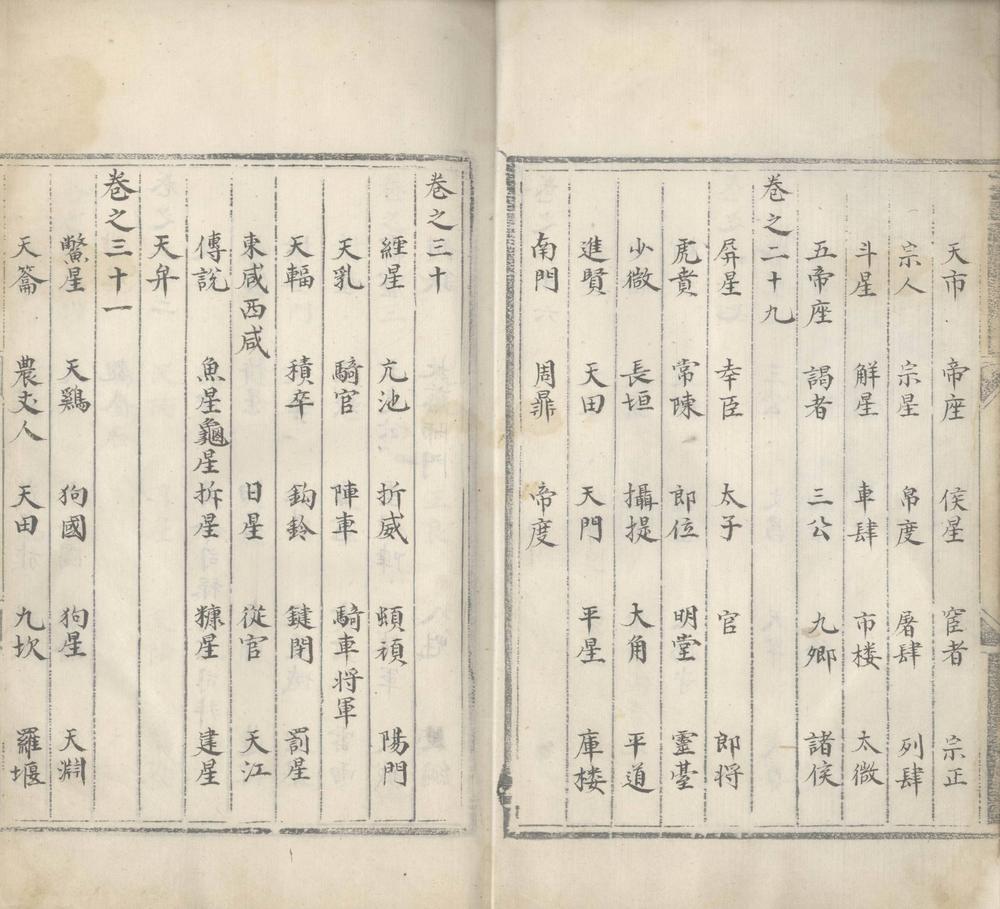 天市 帝座 侯星 宦者 宗正
宗人 宗星 帛度 屠肆 列肆
斗星 解星 車肆 市楼 太微
五帝座 謁者 三公 九卿 諸侯
卷之二十九
屏星 奉臣 太子 官 郎将
虎賁 常陳 郎位 明堂 靈臺
少微 長垣 攝提 大角 平道
進賢 天田 天門 平星 庫楼
南門 周鼎 帝度
卷之三十
經星 亢池 折威 頓頑 陽門
天乳 騎官 陣車 騎車将軍
天輻 積卒 鈎鈐 鍵閉 罰星
東咸西咸 日星 從官 天江
傳說 魚星龜星 拆星 糠星 建星
天弁
卷之三十一
鱉星 天鷄 狗國 狗星 天淵
天籥 農丈人 天田 九坎 羅堰